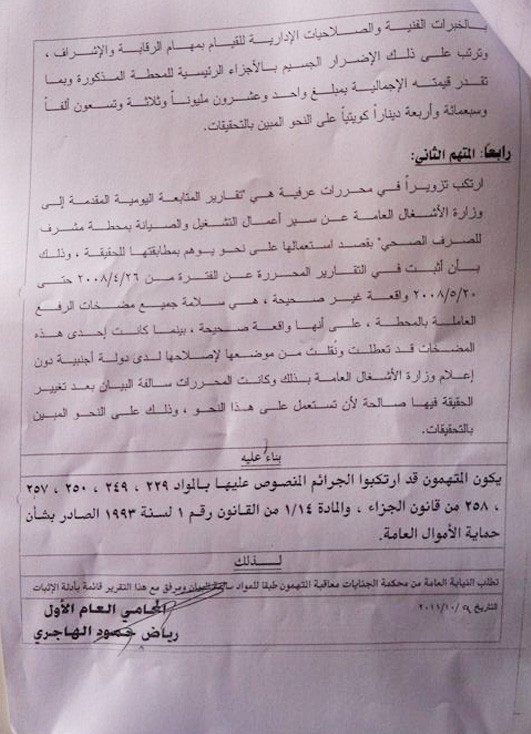 بالخبرات الفنية والصلاحيات الإدارية للقيام بمهام الرقابة والإشراف ،
وترتب على ذلك الإضرار الجسيم بالأجزاء الرئيسية للمحطة المذكورة وبما
تقدر قيمته الإجمالية بمبلغ واحد وعشرون مليوناً وثلاثة وتسعون ألفاً
وسبعمائة وأربعة ديناراً كويتياً على النحو المبين بالتحقيقات.
رابعاً: المتهم الثاني:
ارتكب تزويراً في محررات عرفية هي "تقارير المتابعة اليومية المقدمة إلى
وزارة الأشغال العامة عن سير أعمال التشغيل والصيانة بمحطة مشرف
للصرف الصحي" بقصد استعمالها على نحو يوهم بمطابقتها للحقيقة ، وذلك
بأن أثبت في التقارير المحررة عن الفترة من ٢٠٠٨/٤/٢٦ حتى
٢٠٠٨/٥/٢٠ واقعة غير صحيحة ، هي سلامة جميع مضخات الرفع
العاملة بالمحطة ، على أنها واقعة صحيحة ، بينما كانت إحدى هذه
المضخات قد تعطلت ونُقلت من موضعها لإصلاحها لدى دولة أجنبية دون
إعلام وزارة الأشغال العامة بذلك وكانت المحررات سالفة البيان بعد تغيير
الحقيقة فيها صالحة لأن تستعمل على هذا النحو ، وذلك على النحو المبين
بالتحقيقات.
بناء عليه
يكون المتهمون قد ارتكبوا الجرائم المنصوص عليها بالمواد ٢٢٩ ، ٢٤٩ ، ٢٥٠ ، ٢٥٧
، ٢٥٨ من قانون الجزاء ، والمادة ١/١٤ من القانون رقم ١ لسنة ١٩٩٣ الصادر بشأن
حماية الأموال العامة.
لــذلك
تطلب النيابة العامة من محكمة الجنايات معاقبة المتهمون طبقا للمواد سالفة البيان ومرفق مع هذا التقرير قائمة بأدلة الإثبات
التاريخ ٩ /٢٠١١/١٠
المحامي العام الأول
رياض حمود الهاجري